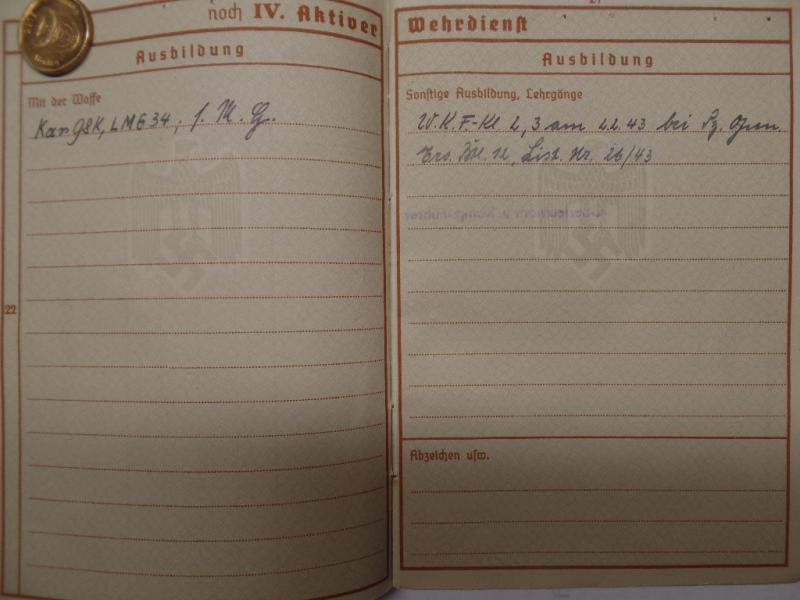 noch IV. Aktiver
Ausbildung
Mit der Waffe
Kar 98K, LMG 34, s. M. G.
22
Wehrdienst
Ausbildung
Sonstige Ausbildung, Lehrgänge
W.K.F.-Kl 2, 3 am 2.2.43 bei Pz.
Ers. 12, List. Nr. 26/43
Abzeichen usw.